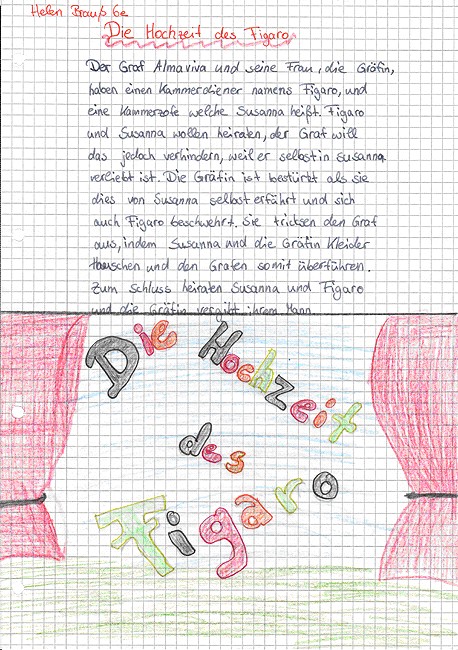 Helen Brauß 6e
Die Hochzeit des Figaro
Der Graf Almaviva und seine Frau, die Gräfin,
haben einen Kammerdiener namens Figaro, und
eine Kammerzofe welche Susanna heißt. Figaro
und Susanna wollen heiraten, der Graf will
das jedoch verhindern, weil er selbst in Susanna
verliebt ist. Die Gräfin ist bestürzt als sie
dies von Susanna selbst erfährt und sich
auch Figaro beschwehrt. Sie tricksen den Graf
aus, indem Susanna und die Gräfin Kleider
tauschen und den Grafen somit überführen.
Zum schluss heiraten Susanna und Figaro
und die Gräfin vergibt ihrem Mann.
Die Hochzeit
des
Figaro